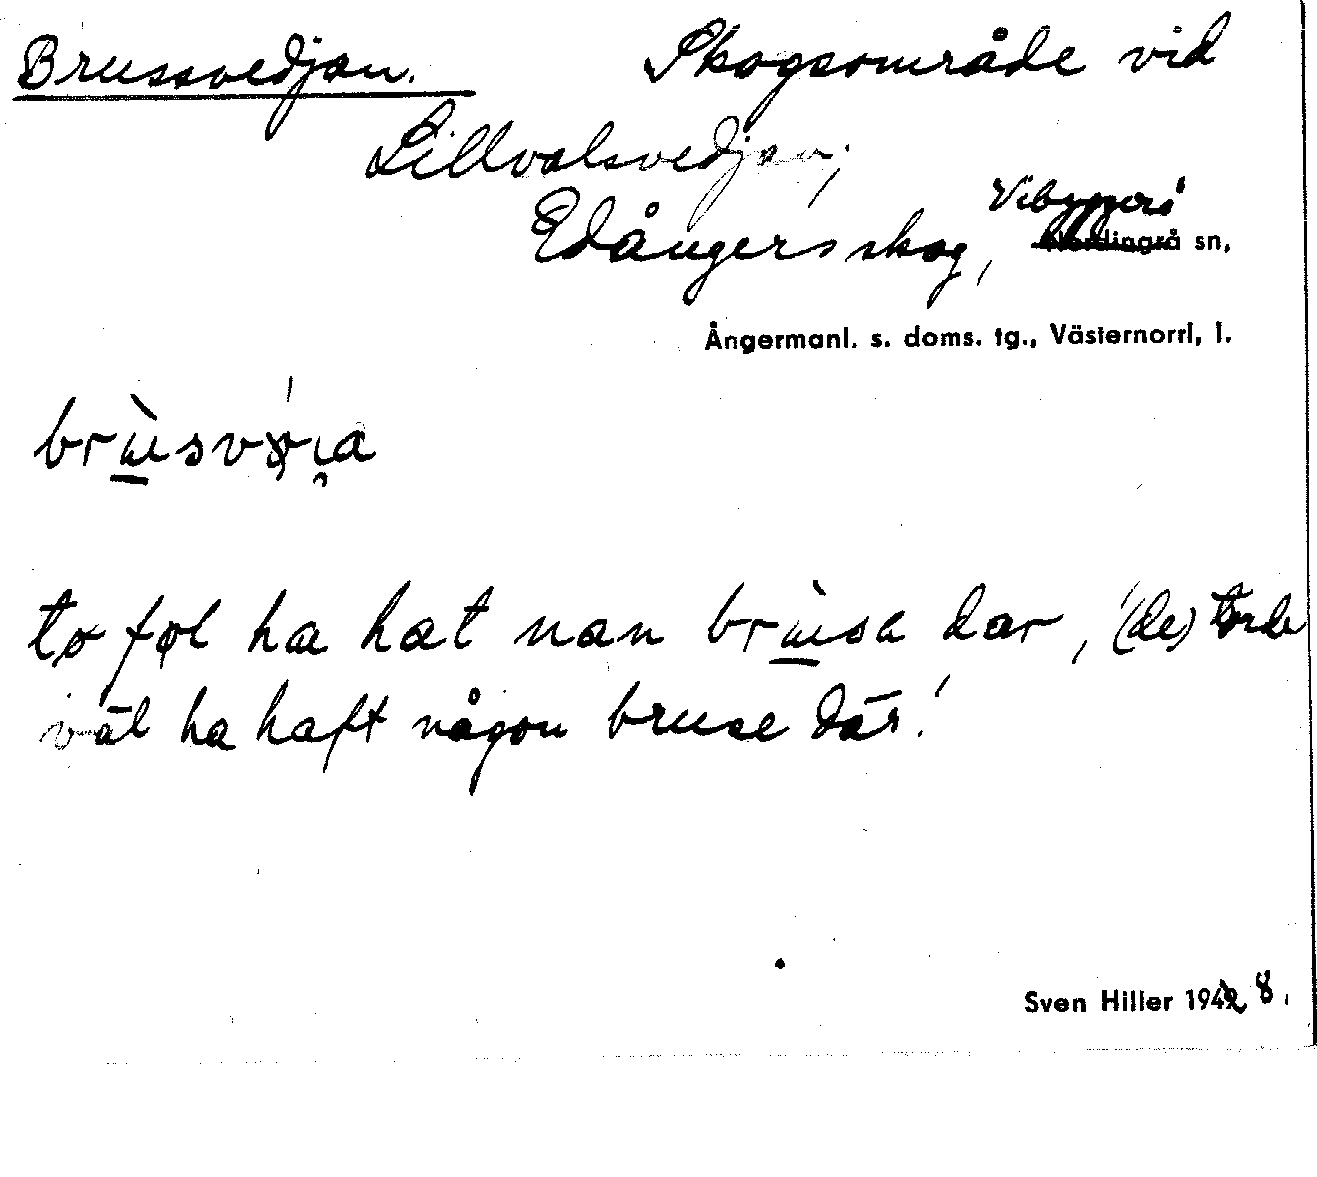 Brussvedjan. Skogsområde vid
Lillvalsvedjan,
Edångersskog, Vibyggerå
Nordingrå sn,
Ångermanl. s. doms. tg., Västernorrl, l.
to føl ha hat nan brùsa dar, '(de) torde
väl ha haft någon bruse där.'
Sven Hiller 1942 8.